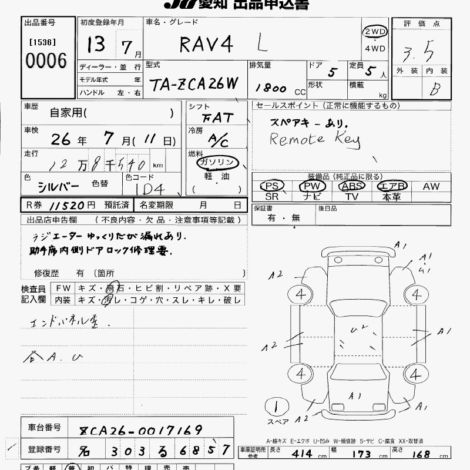 JU愛知 出品申込書
出品番号 初度登録年月 車名・グレード 評価点
[1536] 13年7月 RAV4 L 2WD 4WD 3.5
0006
ディーラー・並行 型式 排気量 ドア 定員 外装 内装
モデル年式 年 TA-ZCA26W 1800CC 5 5人 B
ハンドル 左・右 形状 積載 kg
車歴 自家用( ) シフト FAT セールスポイント(正常に機能するもの)
車検 26年7月(11日) 冷房 A/C スペアキーあり。
Remote Key
走行 12万8千540km 燃料 ガソリン 軽油 ( )
装備品(純正品に限る)
色 シルバー 色替 色コード 1D4 PS PW ABS エアB AW
SR ナビ TV 本革
R券 11520円 預託済 名変期限 月 日 保証書 有・無 後日品
出品店申告欄 (不良内容・欠品・注意事項等記載)
ラジエーターゆっくりだが漏れあり。
助手席内側ドアロック修理要。
修復歴 有(箇所 )
検査員記入欄 FW キズ・飛石・ヒビ割・リペア跡・X要
内装 キズ・汚レ・コゲ・穴・スレ・キレ・破レ
エンドパネル歪
A.U
A2 A1 A1 G1 A1
4 4 4 4
U2
A2 A1 A2
A1 A1
1 スペア
A-線キズ E-エクボ U-凹み W-補修跡 S-サビ C-腐食 XX-取替済
車台番号 ZCA26-0017169
登録番号 名 303 る 6857
車庫証明用参考 長さ 414cm 幅 173cm 高さ 168cm